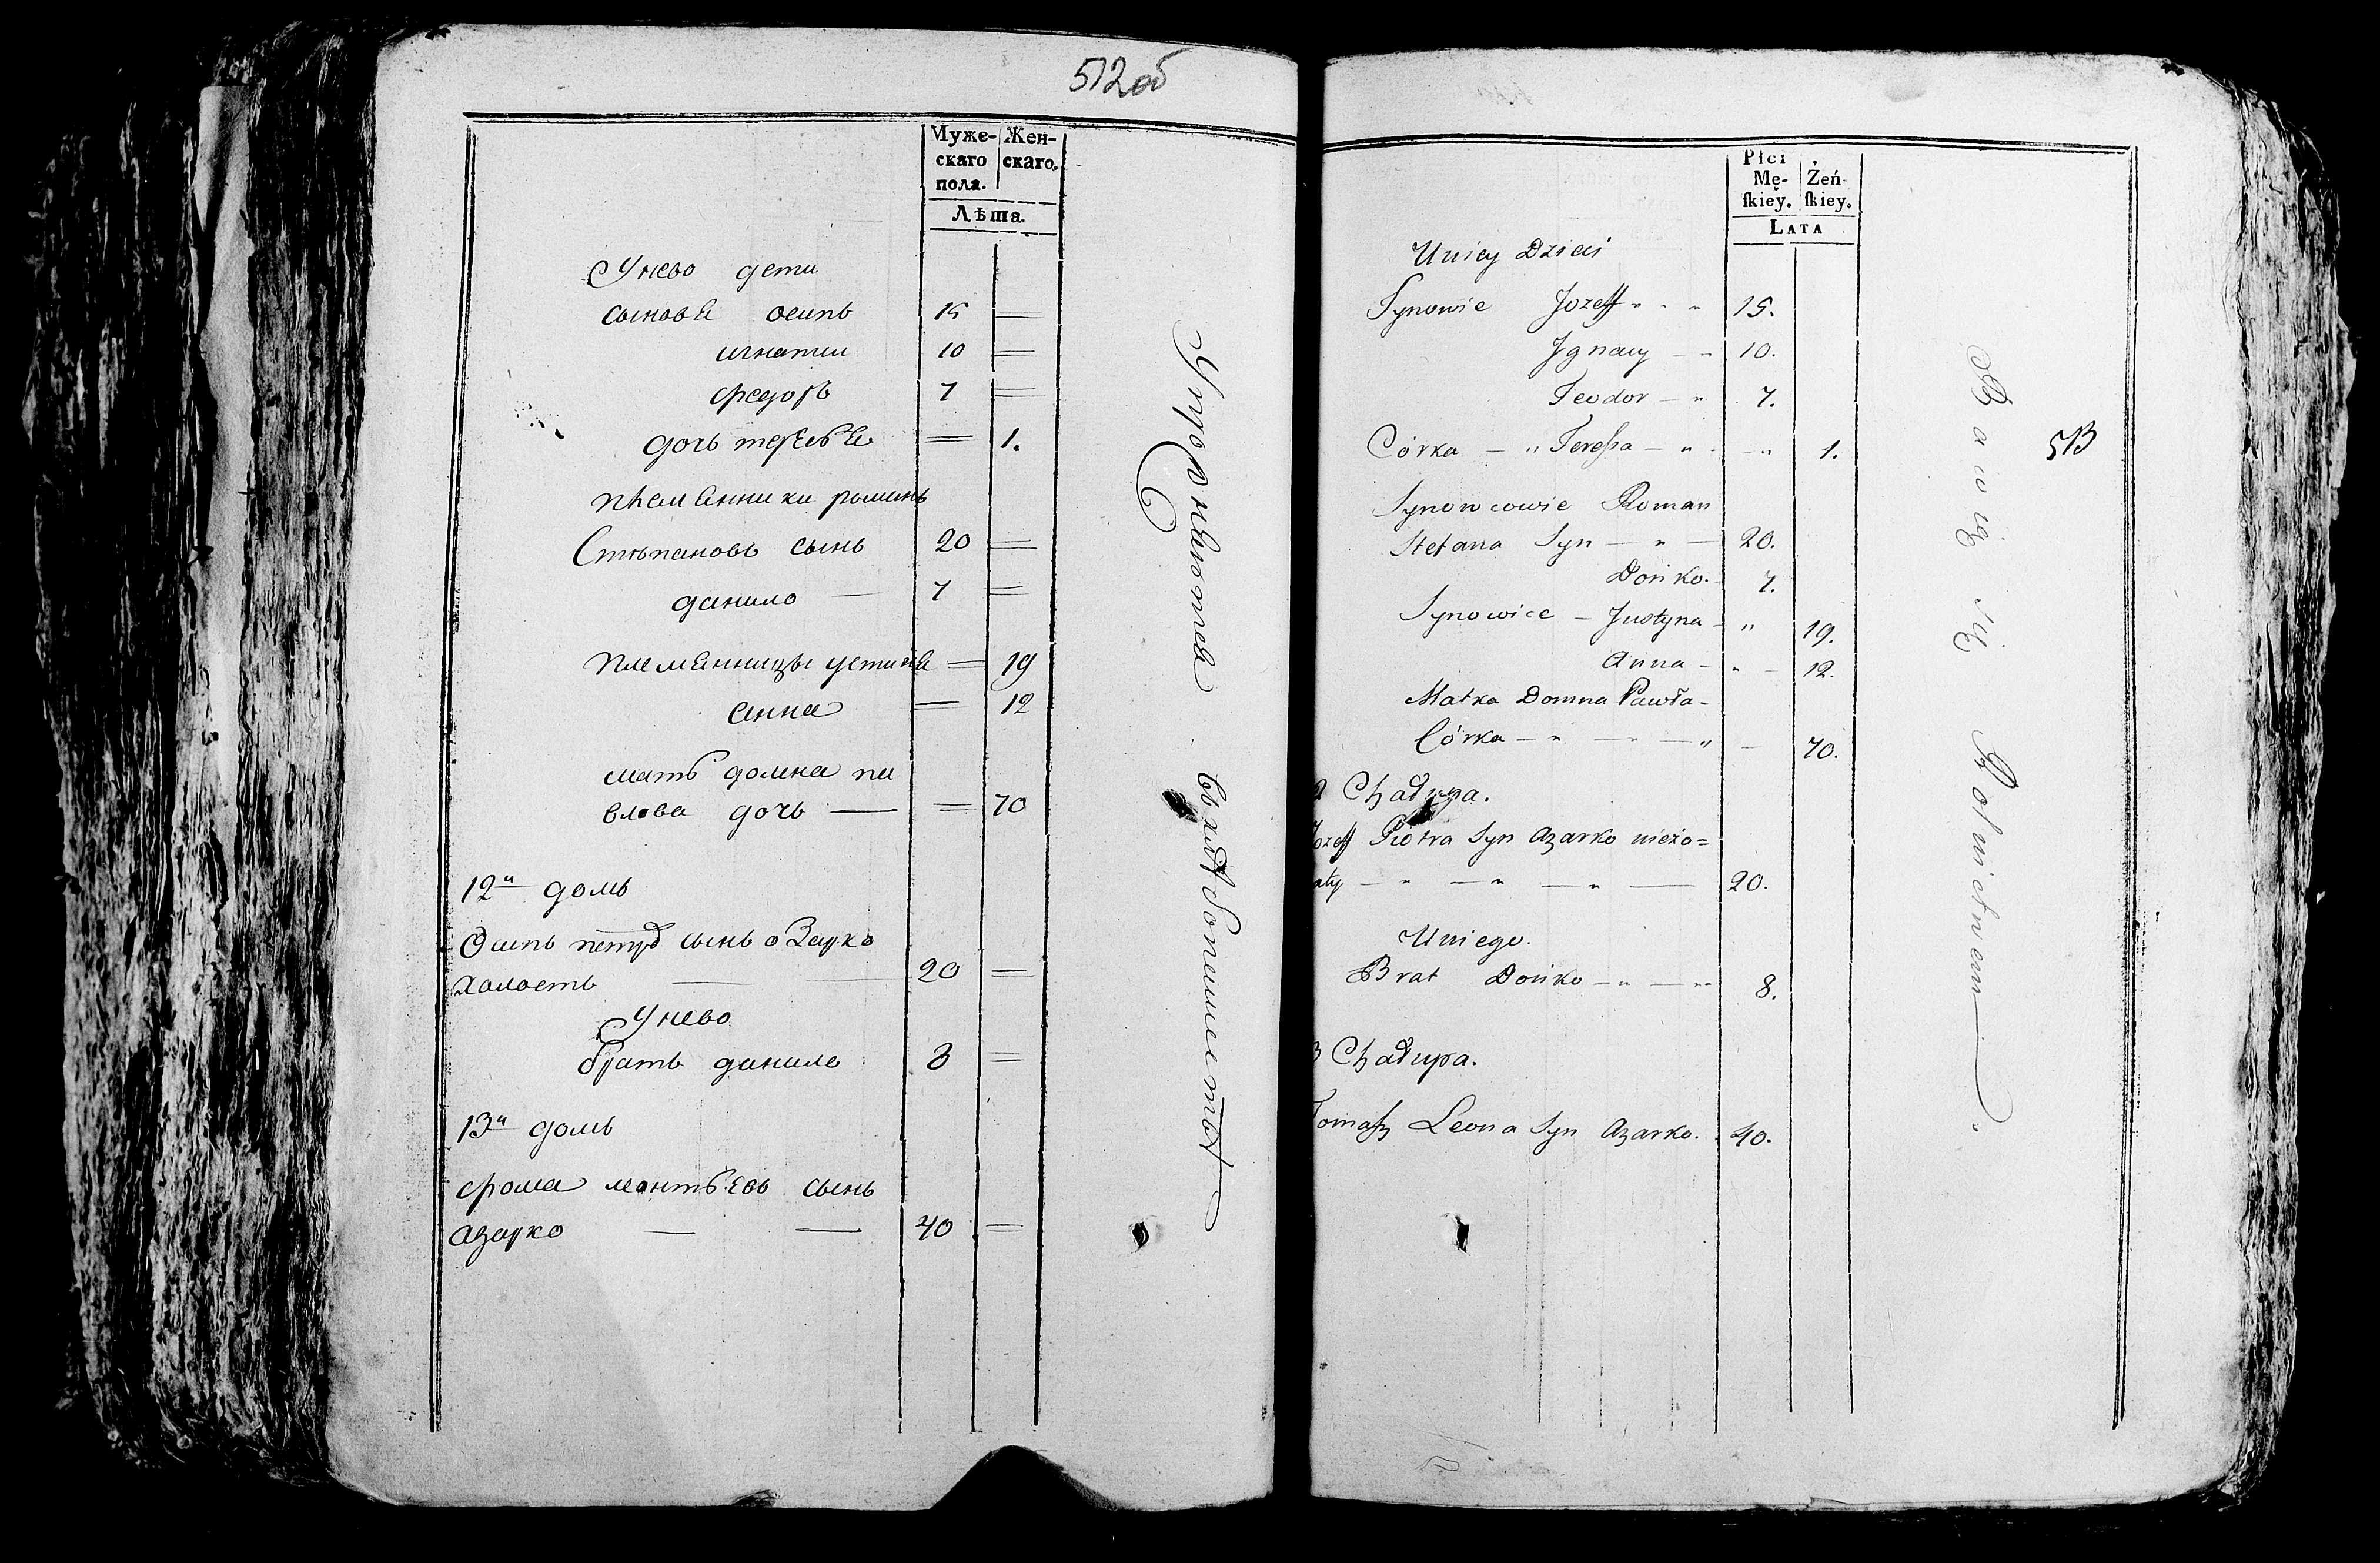 512об
Муже- Жен-
скаго скаго.
пола.
Лѣта.
Унево дети
сыновья осипъ 15
игнатии 10
федоръ 7
дочь 1.
племянники
Степановъ сынъ 20
данило — 7
племянницы устиня 19
анна 12
мать домна па
влова дочь — 70
12й домъ
Осипъ сынъ озарко
холостъ 20
Унево
братъ данило 8
13й домъ
фома леонтьевъ сынъ
азарко — — 40
Упражняются в хлебопашестве
Płci
Mę- Żeń-
skiey. skiey.
LATA
Uniey Dzieci
Synowie Jozeff 15.
Jgnacy 10.
Teodor 7.
Córka Teressa 1.
Synowcowie Roman
Stefana Syn 20.
Dońko. 7.
Synowice Justyna 19.
Anna 12.
Matka Domna Pawła-
Córka 70.
2 Chałupa.
Jozeff Piotra Syn Azarko nieżo=
naty 20.
Uniego.
Brat Dońko 8.
3 Chałupa.
Tomasz Leona Syn Azarko. 40.
Bawią się Rolnictwem.
513